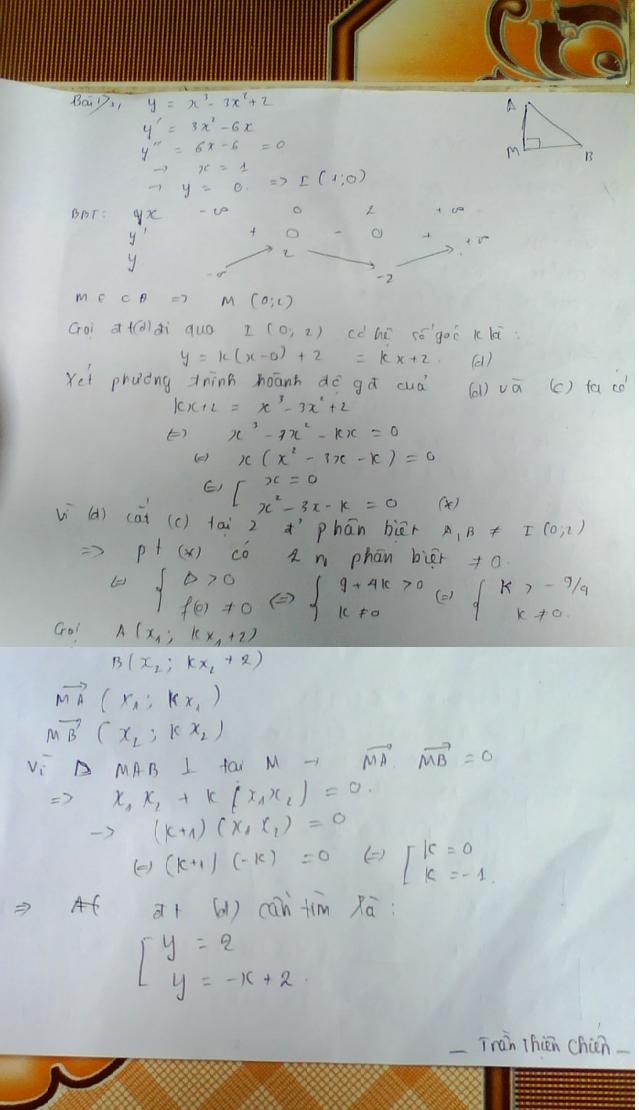 Bài 1, y = x³ - 3x² + 2
y' = 3x² - 6x
y'' = 6x - 6 = 0
→ x = 1
→ y = 0. => I (1;0)
A
M B
BBT: x -∞ 0 2 +∞
y' + 0 - 0 +
y -∞ 2 -2 +∞
M ∈ CĐ => M (0;2)
Gọi đt(d) đi qua I (0; 2) có hệ số góc k là:
y = k(x-0) + 2 = kx + 2. (d)
Xét phương trình hoành độ gđ của (d) và (C) ta có
kx + 2 = x³ - 3x² + 2
(=) x³ - 3x² - kx = 0
(=) x (x² - 3x - k) = 0
(=) [ x = 0
x² - 3x - k = 0 (*)
Vì (d) cắt (C) tại 2 đ' phân biệt A, B ≠ I (0;2)
=> pt (*) có 2 n₀ phân biệt ≠ 0.
(=) { Δ > 0 (=) { 9 + 4k > 0 (=) { k > -9/4
f(0) ≠ 0 k ≠ 0 k ≠ 0.
Gọi A (x₁; kx₁ + 2)
B (x₂; kx₂ + 2)
MA (x₁; kx₁)
MB (x₂; kx₂)
Vì Δ MAB ⊥ tại M → MA. MB = 0
=> x₁ x₂ + k (x₁x₂) = 0.
→ (k+1) (x₁ x₂) = 0
(=) (k+1) (-k) = 0 (=) [ k = 0
k = -1.
=> đt (d) cần tìm là:
[ y = 2
y = -x + 2.
_ Trần Thiện Chiến _